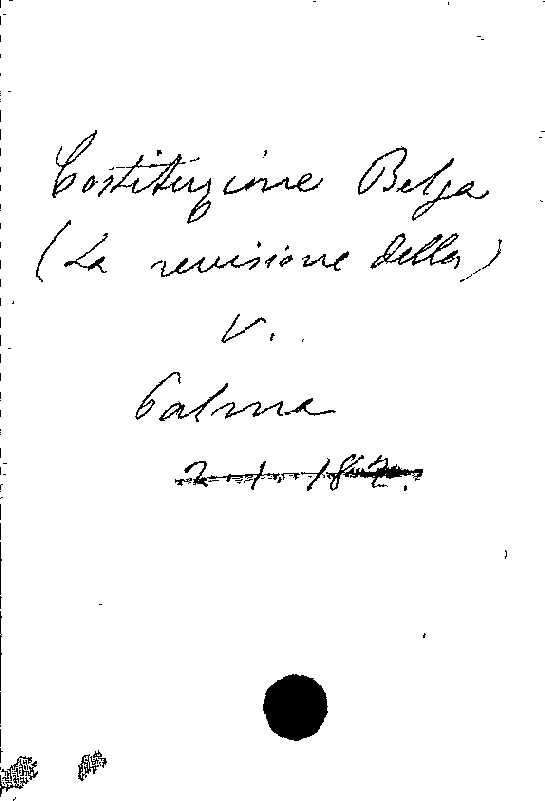 Costituzione Belga
(La revisione della)
V.
Palma